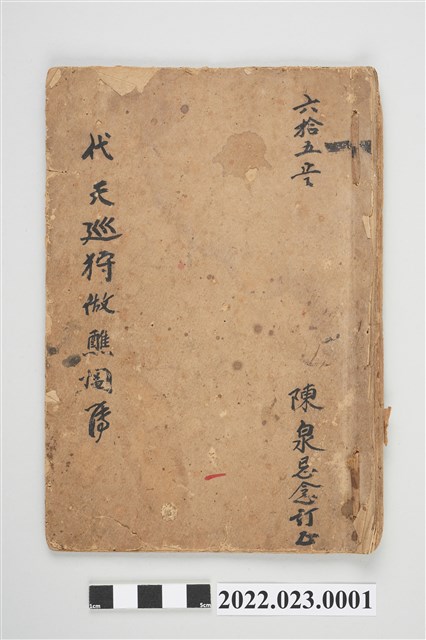 六拾五号
陳泉忌念訂正
代天巡狩做醮
1cm
5cm
2022.023.0001